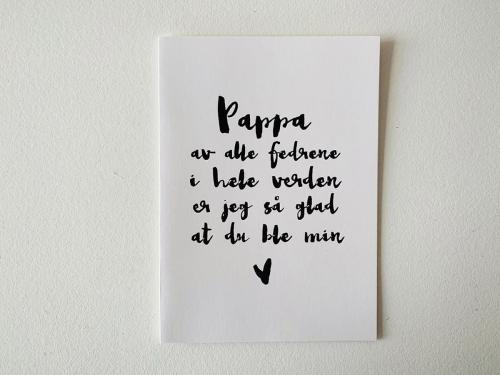 Pappa
av alle fedrene
i hele verden
er jeg så glad
at du ble min